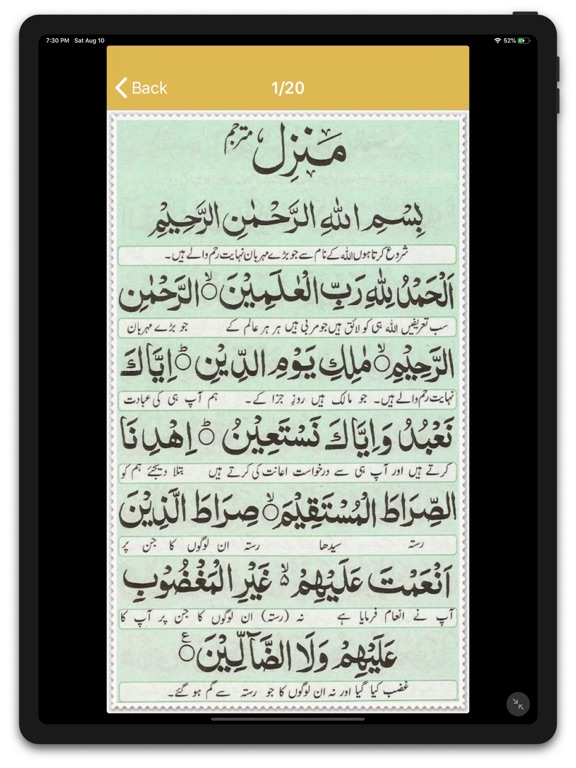 7:30 PM Sat Aug 10
52%
Back
1/20
مَنزِل مترجم
بِسْمِ اللهِ الرَّحْمٰنِ الرَّحِيْمِ
شروع کرتا ہوں اللہ کے نام سے جو بڑے مہربان نہایت رحم والے ہیں۔
اَلْحَمْدُ لِلّٰهِ رَبِّ الْعٰلَمِيْنَ ۙ الرَّحْمٰنِ
سب تعریفیں اللہ ہی کو لائق ہیں جو مربی ہیں ہر ہر عالم کے جو بڑے مہربان
الرَّحِيْمِ ۙ مٰلِكِ يَوْمِ الدِّيْنِ ؕ اِيَّاكَ
نہایت رحم والے ہیں۔ جو مالک ہیں روز جزا کے۔ ہم آپ ہی کی عبادت
نَعْبُدُ وَاِيَّاكَ نَسْتَعِيْنُ ؕ اِهْدِنَا
کرتے ہیں اور آپ ہی سے درخواست اعانت کی کرتے ہیں بتلا دیجئے ہم کو
الصِّرَاطَ الْمُسْتَقِيْمَ ۙ صِرَاطَ الَّذِيْنَ
رستہ سیدھا رستہ ان لوگوں کا جن پر
اَنْعَمْتَ عَلَيْهِمْ ۙ غَيْرِ الْمَغْضُوْبِ
آپ نے انعام فرمایا ہے نہ (رستہ) ان لوگوں کا جن پر آپ کا
عَلَيْهِمْ وَلَا الضَّآلِّيْنَ ع
غضب کیا گیا اور نہ ان لوگوں کا جو رستہ سے گم ہو گئے۔